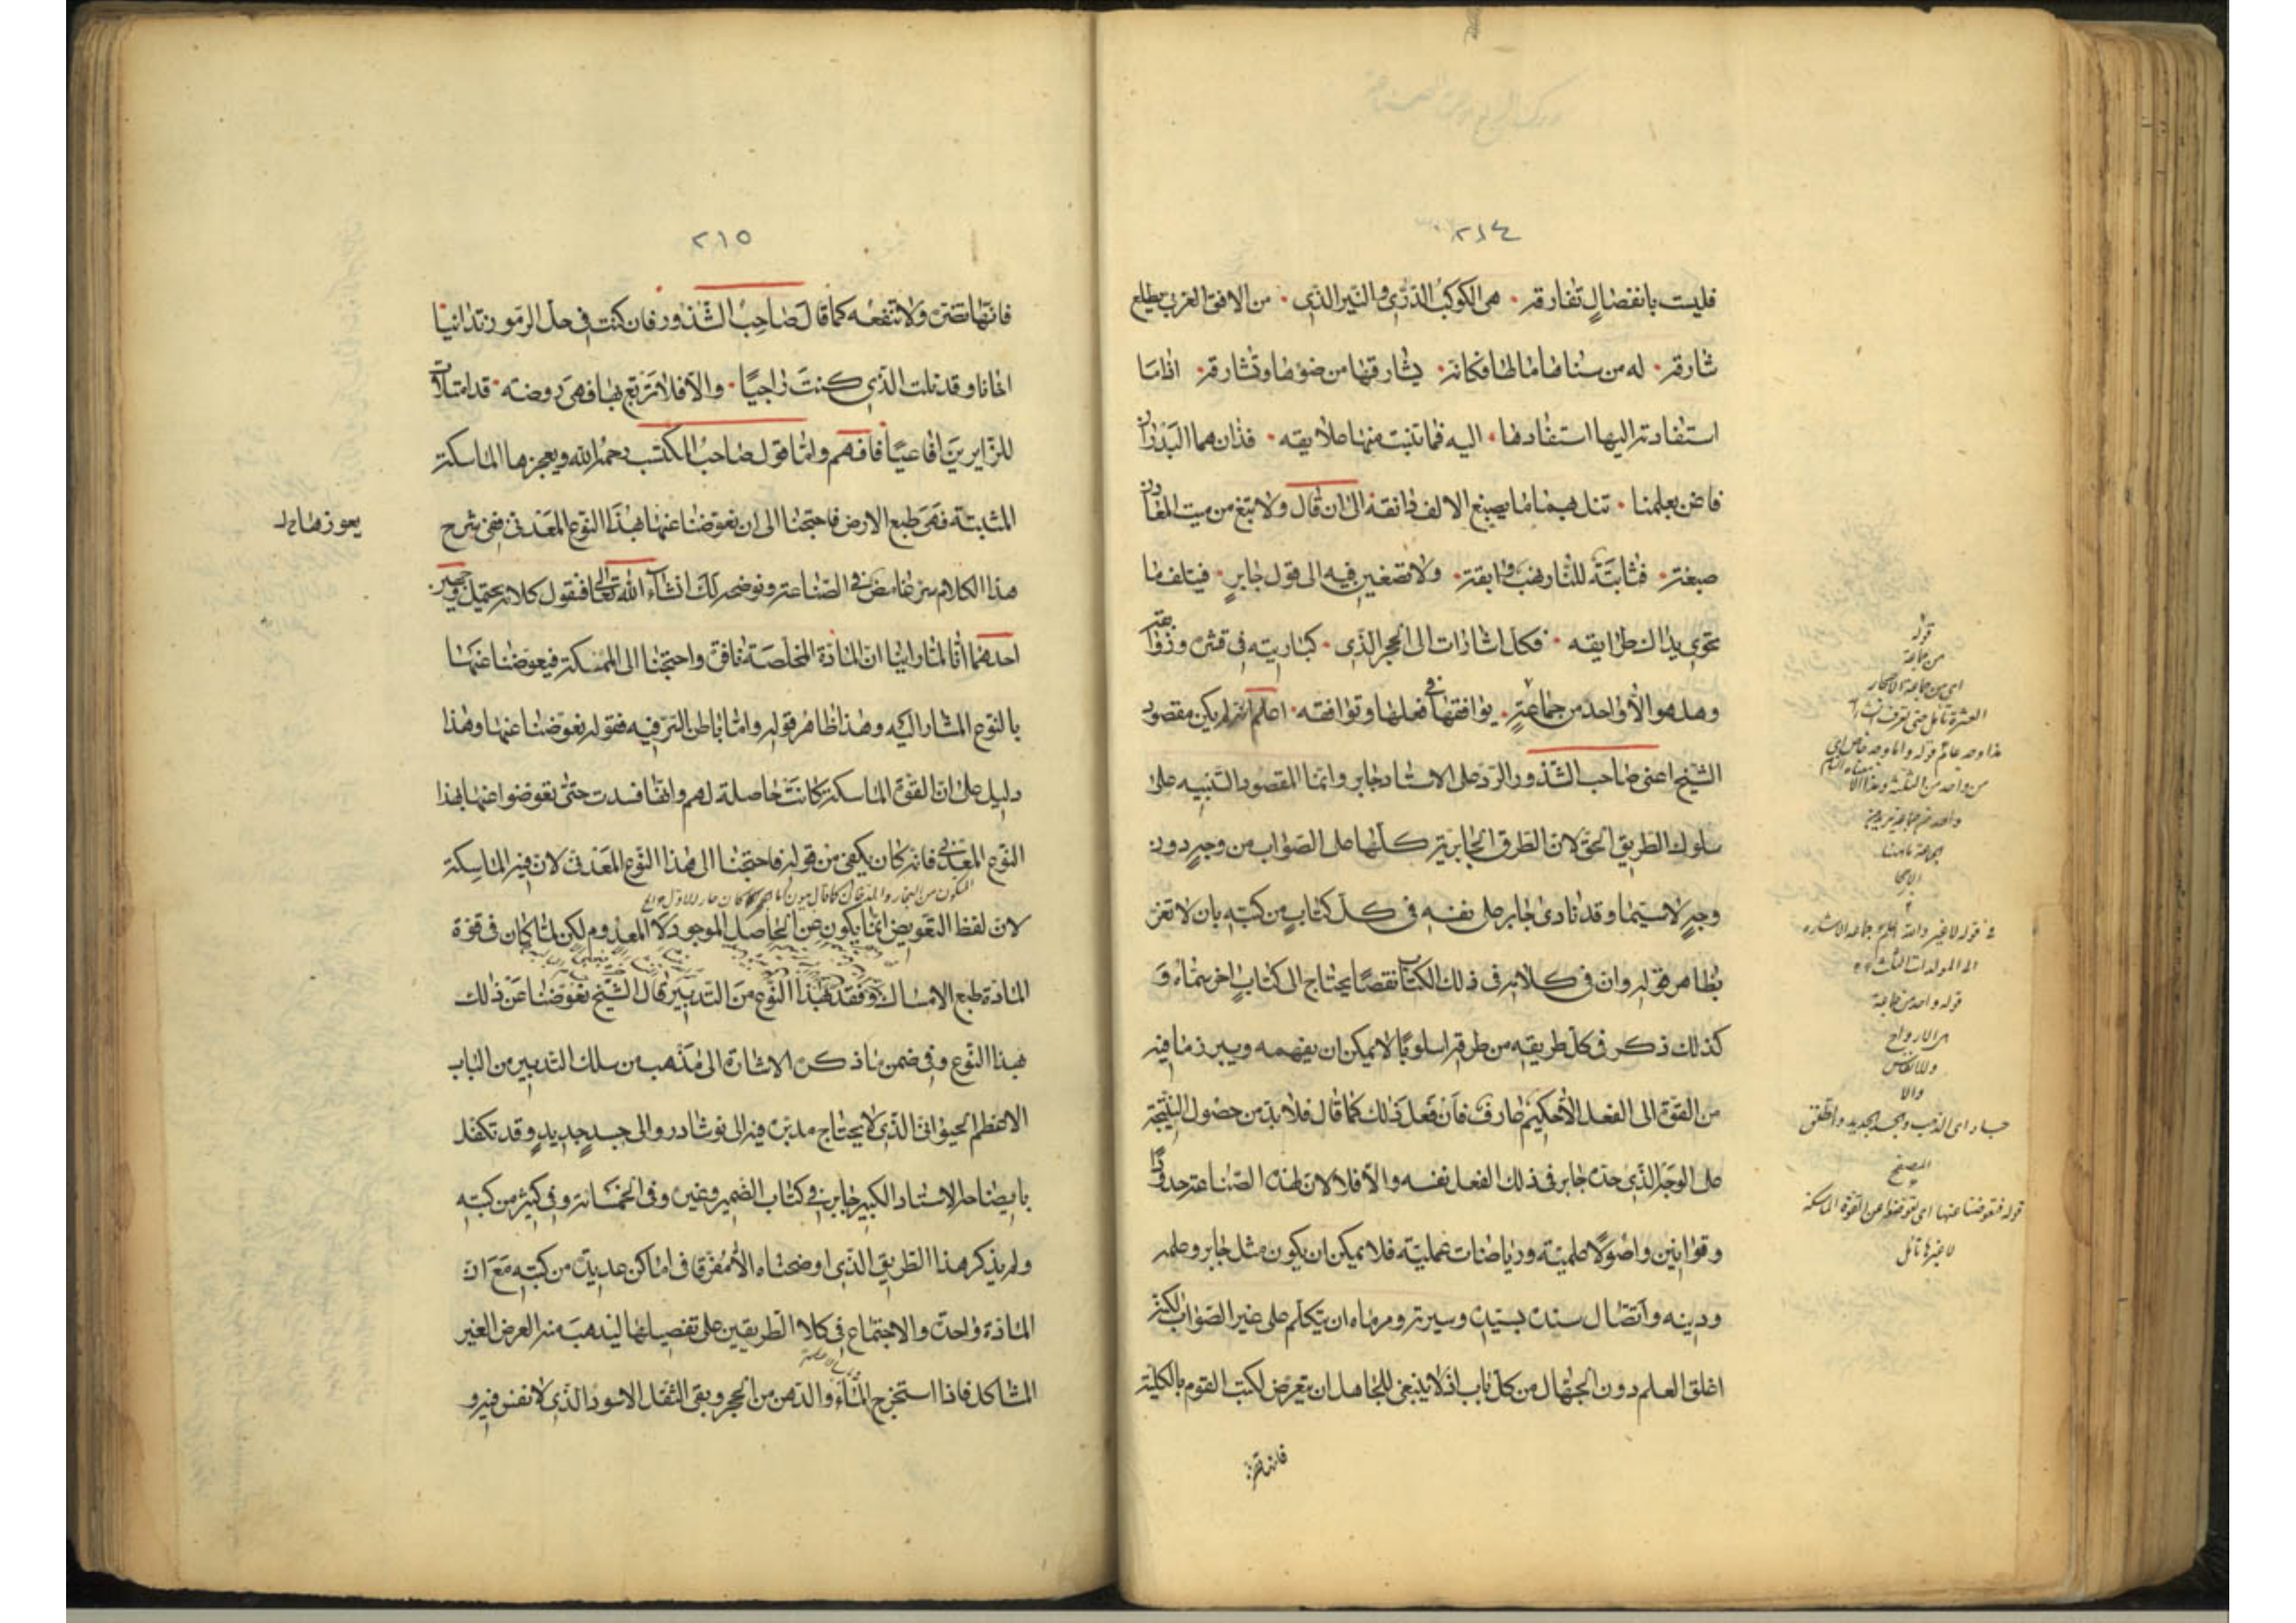 ٢١٤
فليست بانفصال تفارقه • هي الكوكب الدري والنير الذي • من الافق الغربي يطلع
شارقه • له من سناها مالها فكانه • يشارقها من ضوءها وتشارقه • اذا ما
استفادته اليها استفادها • اليه فما تنبت منها علايقه • فذان هما البدران
فاغن بعلمنا • تنل بهما ما يصبغ الالف دانقه الى ان قال ولا تبغ من ميت
صبغته • فثابتة للنار وابقته • ولا تصغين فيه الى قول جابر • فيتلف ما
تحوي يداك طرايقه • فكل اشارات الى الحجر الذي • كباريته في قشره
وهل هو الا واحد من جماعة • يوافقها في فعلها وتوافقه • اعلم انه لم يكن مقصود
الشيخ اعني صاحب الشذور الرد على الاستاد جابر وانما المقصود التنبيه على
سلوك الطريق الحق لان الطرق الجابرية كلها على الصواب من وجه دون
وجه لا سيما وقد نادى جابر على نفسه في كل كتاب من كتبه بان لا تغتر
بظاهر قوله وان في كلامه في ذلك الكتاب نقصا يحتاج الى كتاب اخر سماه و
كذلك ذكر في كل طريقه من طرقه اسلوبا لا يمكن ان يفهمه ويبرز ما فيه
من القوة الى الفعل الا حكيم عارف فان فعل ذلك كما قال فلا بد من حصول النتيجة
على الوجه الذي حده جابر في ذلك الفعل نفسه والا فلا لان لهذه الصناعة حدودا
وقوانين واصولا علمية ورياضات عملية فلا يمكن ان يكون مثل جابر وعلمه
ودينه واتصال سنده بسيده وسيرته ومرماه ان يتكلم على غير الصواب لكنه
اغلق العلم دون الجهال من كل باب اذ لا ينبغي للجاهل ان يتعرض لكتب القوم بالكلية
فانها تضره
قوله
من جماعة
اي من جماعة الاحجار
قوله واحد من جماعة
من الارواح
والا
قوله فتعوضنا عنها اي تعوضنا عن القوة الماسكة
لا غيرها تأمل
٢١٥
فانها تضره ولا تنفعه كما قال صاحب الشذور فان كنت في حل الرموز تدانيا
اخانا وقد نلت الذي كنت راجيا • والا فلا ترتع بها فهي روضة • قد امتلات
للزايرين افاعيا فافهم واما قول صاحب المكتسب رحمه الله ويعجزها الماسكة
المثبتة فهي طبع الارض فاحتجنا الى ان نعوضنا عنها بهذا النوع المعدني ففي شرح
هذا الكلام سر غامض في الصناعة ونوضحه لك انشاء الله تعالى فنقول كلامه يحتمل وجهين
احدهما انا لما راينا ان المادة المخلصة نافق واحتجنا الى الممسكة فيعوضنا عنها
بالنوع المشار اليه وهذا ظاهر قوله واما باطن السر فيه فقوله نعوضنا عنها وهذا
دليل على ان القوة الماسكة كانت حاصلة لهم وانها فسدت حتى تعوضوا عنها بهذا
النوع المعدني فانه كان يكفي من قوله فاحتجنا الى هذا النوع المعدني لان فيه الماسكة
لان لفظ التعويض انما يكون عن الحاصل الموجود لا المعدوم لكن لما كان في قوة
المادة طبع الامساك وفقد بهذا النوع من التدبير قال الشيخ نعوضنا عن ذلك
بهذا النوع وفي ضمن ما ذكره الاشارة الى مذهب من سلك التدبير من الباب
الاعظم الحيواني الذي لا يحتاج مدبره فيه الى نوشادر والى جسد جديد وقد تكفل
بايضاحه الاستاد الكبير جابر في كتاب الضمير وغيره وفي الخمسمائة وفي كثير من كتبه
ولم يذكر هذا الطريق الذي اوضحناه الا مفرقا في اماكن عديدة من كتبه مع ان
المادة واحدة والاجتماع في كلا الطريقين على تفصيلها ليذهب منه العرض الغير
المشاكل فاذا استخرج الماء والدهن من الحجر وبقي الثفل الاسود الذي لا نفس فيه و
يعوزها